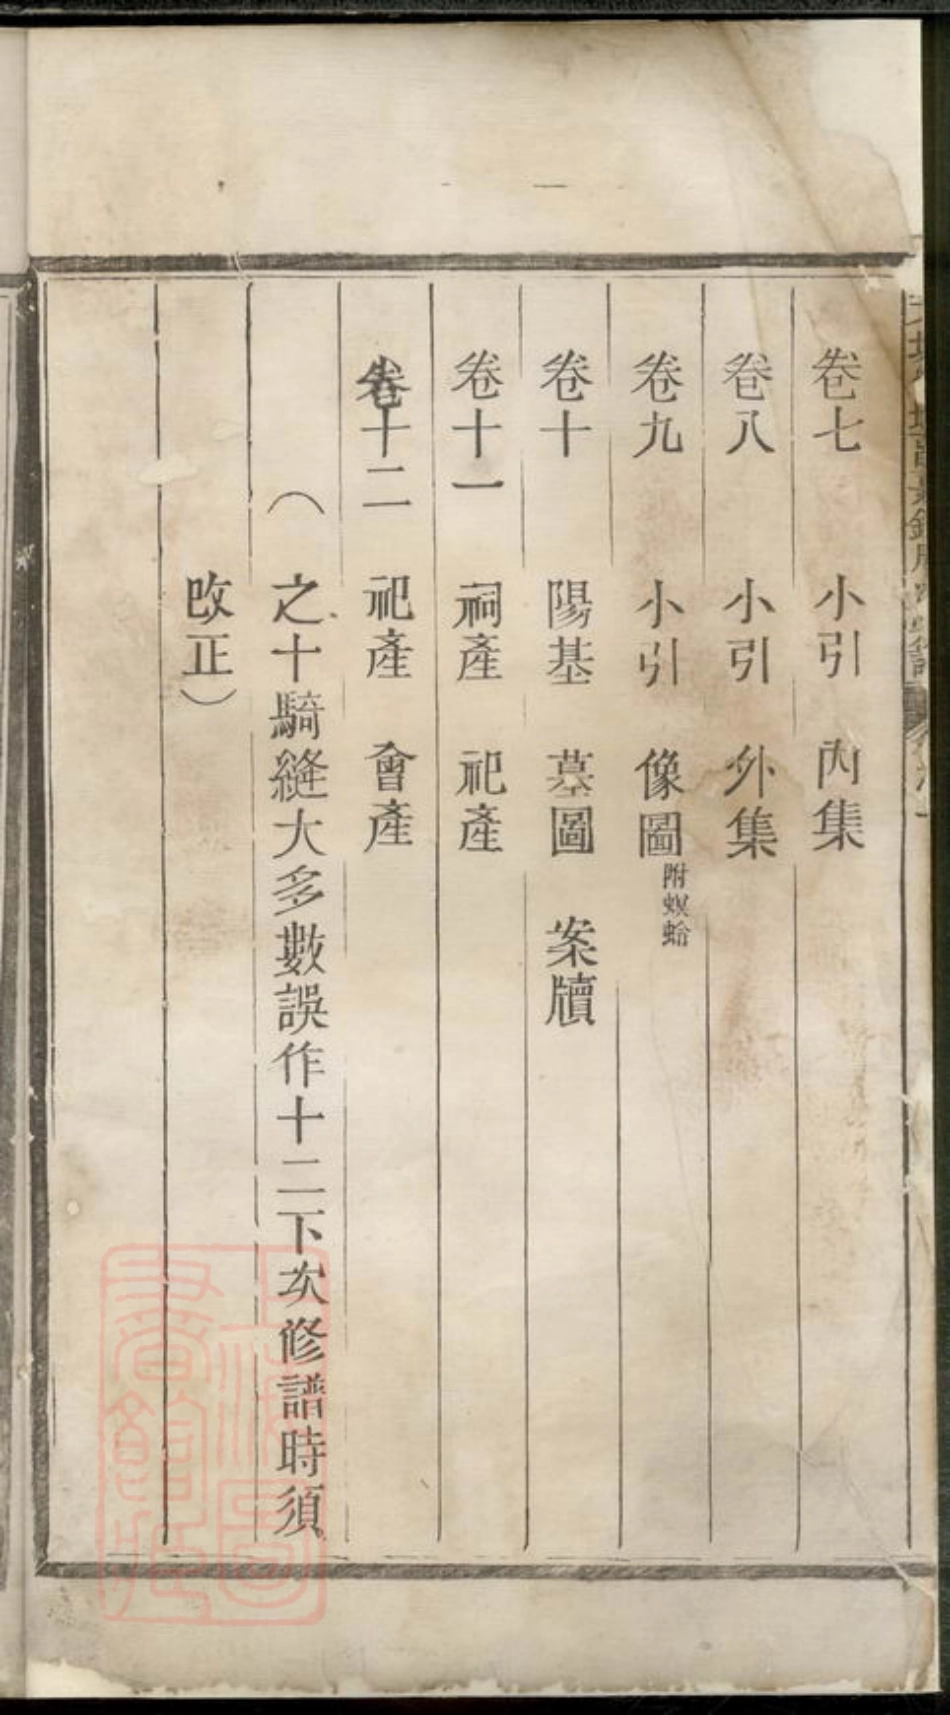 卷七　小引　內集
卷八　小引　外集
卷九　小引　像圖附螟蛉
卷十　陽基　墓圖　案牘
卷十一　祠產　祀產
卷十二　祀產　會產
（　之十騎縫大多數誤作十二下次修譜時須
改正）